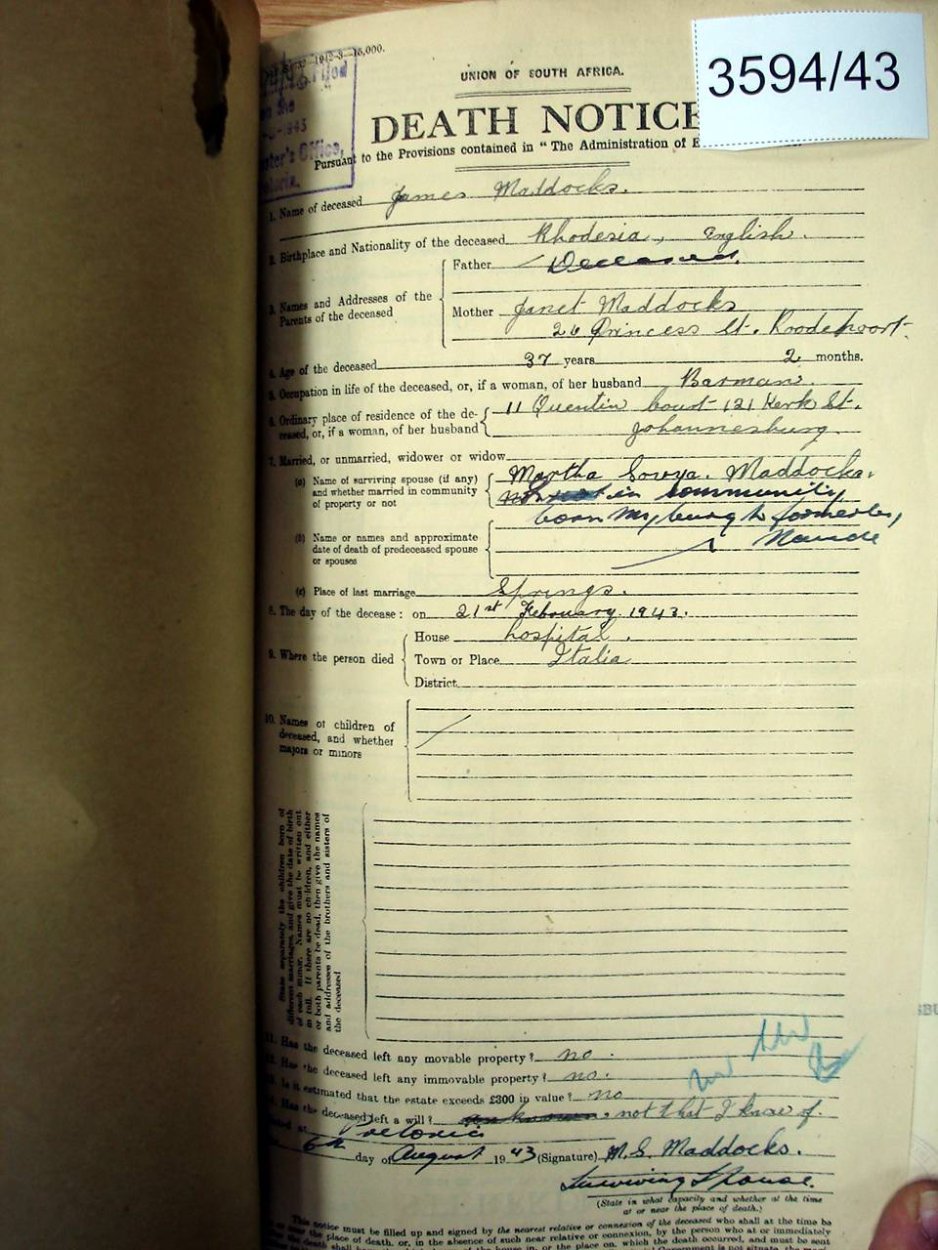 1942-3-15,000.
3594/43
UNION OF SOUTH AFRICA.
DEATH NOTICE
Pursuant to the Provisions contained in " The Administration of E
1. Name of deceased James Maddocks.
2. Birthplace and Nationality of the deceased Rhodesia, English.
3. Names and Addresses of the Parents of the deceased
Father Deceased.
Mother Janet Maddocks
26 Princess St. Roodepoort.
4. Age of the deceased 37 years 2 months.
5. Occupation in life of the deceased, or, if a woman, of her husband Barman.
6. Ordinary place of residence of the de-
ceased, or, if a woman, of her husband
11 Quentin Court 121 Kerk St.
Johannesburg.
7. Married, or unmarried, widower or widow
(a) Name of surviving spouse (if any)
and whether married in community
of property or not
Martha Maddocks.
in community
born formerly
(b) Name or names and approximate
date of death of predeceased spouse
or spouses
Naude
(c) Place of last marriage Springs.
8. The day of the decease : on 21st February 1943.
9. Where the person died
House hospital.
Town or Place Italia
District
10. Names of children of
deceased, and whether
majors or minors
State separately the children born of
different marriages, and give the date of birth
of each minor. Names must be written out
in full. If there are no children, and either
or both parents be dead, then give the names
and addresses of the brothers and sisters of
the deceased
11. Has the deceased left any movable property? no.
12. Has the deceased left any immovable property? no.
13. Is it estimated that the estate exceeds £300 in value? no
14. Has the deceased left a will? unknown, not that I know of.
Dated at Pretoria
6th day of August 1943 (Signature) M.S. Maddocks.
Surviving Spouse.
(State in what capacity and whether at the time
at or near the place of death.)
This notice must be filled up and signed by the nearest relative or connexion of the deceased who shall at the time be
or near the place of death, or, in the absence of such near relative or connexion, by the person who at or immediately
the death shall have of the house in, or the place on, which the death occurred, and must be sent